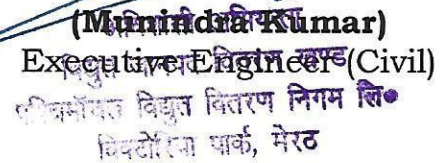 (Munindra Kumar)
अभियन्ता
Executive Engineer (Civil)
विद्युत खण्ड
पश्चिमांचल विद्युत वितरण निगम लि०
विक्टोरिया पार्क, मेरठ